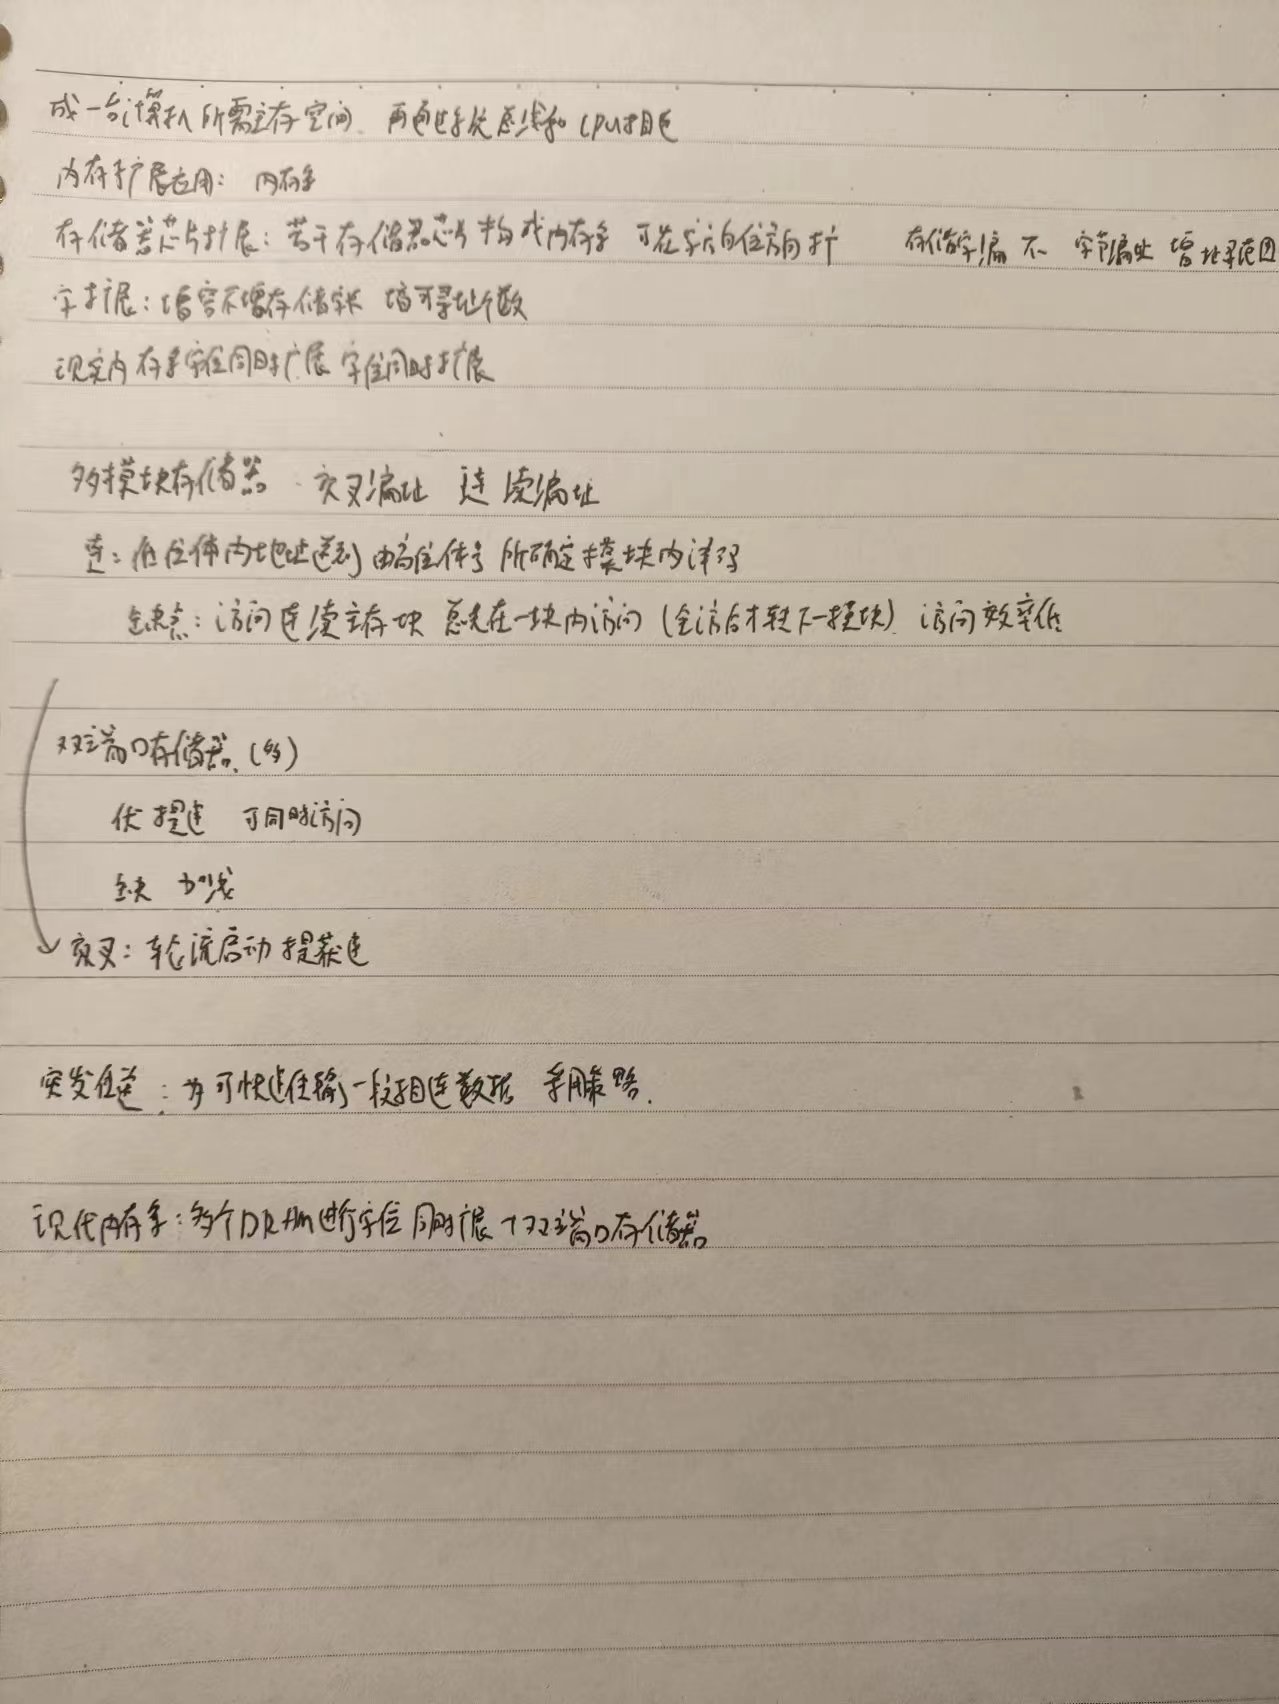 成一台计算机所需主存空间 再通过系统总线和CPU相连
内存扩展应用： 内存条
存储器芯片扩展：若干存储器芯片构成内存条 可在字方向位方向扩 存储字编 不 字节编址 增 址寻范围
字扩展：增容不增存储字长 增可寻址个数
现实内存条字位同时扩展 字位同时扩展
多模块存储器 交叉编址 连续编址
连：低位体内地址送到由高位体号所确定模块内译码
缺点：访问连续主存块 总先在一块内访问（全访后才转下一模块） 访问效率低
双端口存储器（多）
优 提速 可同时访问
缺 加线
交叉：轮流启动 提获速
突发传送：为可快速传输一段相连数据 采用策略.
现代内存条：多个DRAM进行字位同时扩展＋双端口存储器